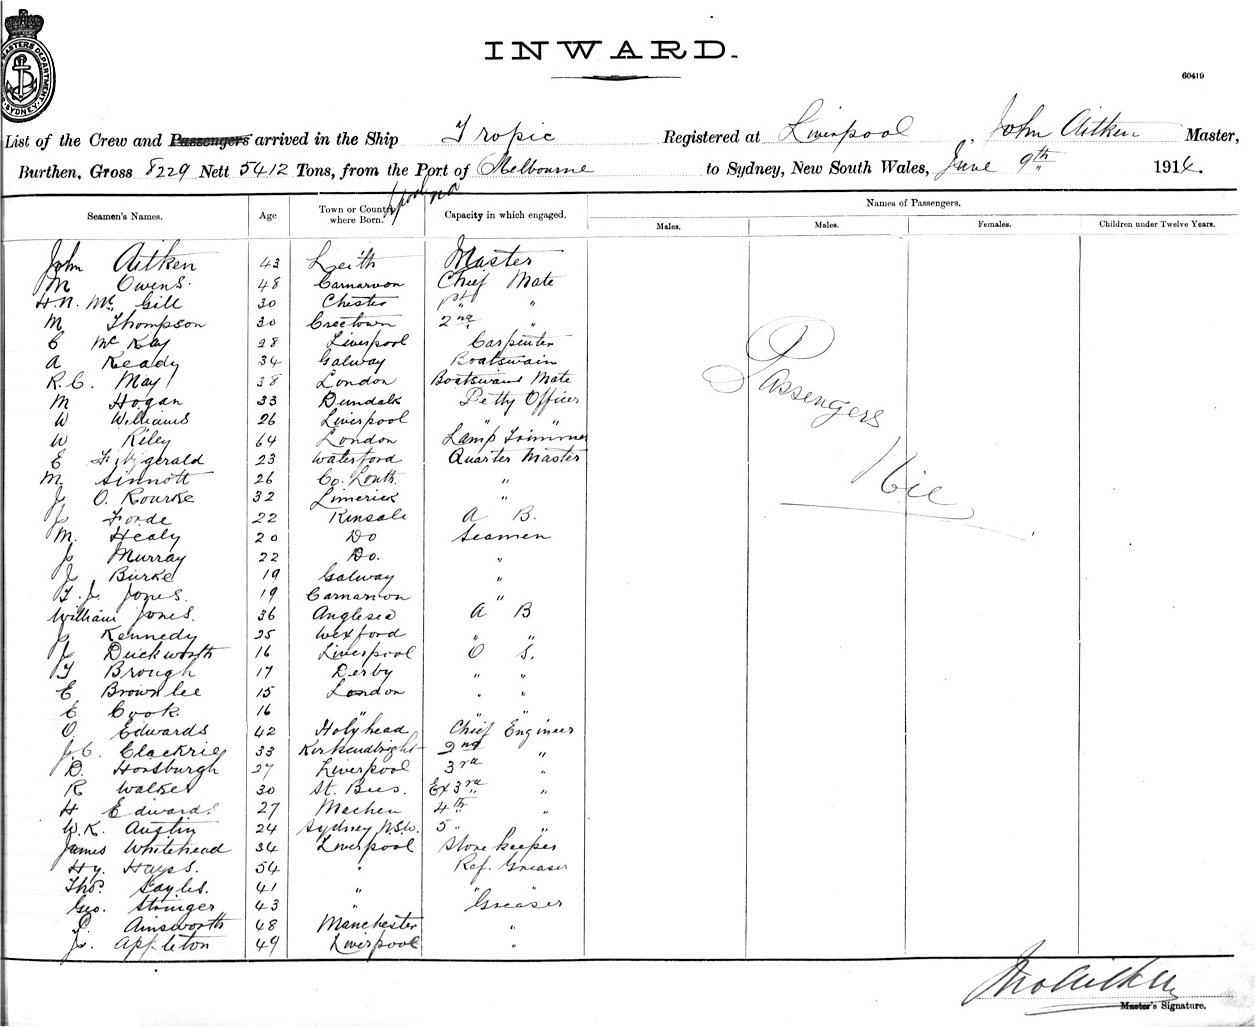 MASTERS DEPARTMENT SYDNEY
INWARD.
60419
List of the Crew and Passengers arrived in the Ship Tropic Registered at Liverpool, John Aitken Master,
Burthen, Gross 8229 Nett 5412 Tons, from the Port of Melbourne to Sydney, New South Wales, June 9th 1914.
Seamen's Names. Age Town or County where Born. Capacity in which engaged. Names of Passengers.
Males. Males. Females. Children under Twelve Years.
John Aitken 43 Leith Master
M Owens 48 Carnarvon Chief Mate
H.N. Mc Gill 30 Chester 1st "
M Thompson 30 Creetown 2nd "
C McKay 28 Liverpool Carpenter
A Keady 34 Galway Boatswain
R.C. May 38 London Boatswains Mate
M Hogan 33 Dundalk Petty Officer
W Williams 26 Liverpool " "
W Riley 64 London Lamp Trimmer
E Fitzgerald 23 Waterford Quarter Master
M. Sinnott 26 Co. Louth "
J O. Rourke 32 Limerick "
J Forde 22 Kinsale A B.
M. Healy 20 Do Seamen
J Murray 22 Do. "
J Burke 19 Galway "
T. J. Jones. 19 Carnarvon "
William Jones. 36 Anglesea A B
J Kennedy 25 Wexford " "
J Duckworth 16 Liverpool O S.
T Brough 17 Derby " "
E Brownlee 15 London " "
E Cook. 16 " " "
O. Edwards 42 Holyhead Chief Engineer
J.C. Clackrie 33 Kirkcudbright 2nd "
D. Horsburgh 27 Liverpool 3rd "
R Walker 30 St. Bees. Ex 3rd "
H Edwards 27 Machen 4th "
W.K. Austin 24 Sydney N.S.W. 5 " "
James Whitehead 34 Liverpool Storekeeper
Hy. Hays. 54 " Ref. Greaser
Thos. Sayles. 41 "
Geo. Stringer 43 " "Greaser"
Ainsworth 48 Manchester "
J. Appleton 49 Liverpool "
Passengers
Nil
Jno Aitken
Master's Signature.